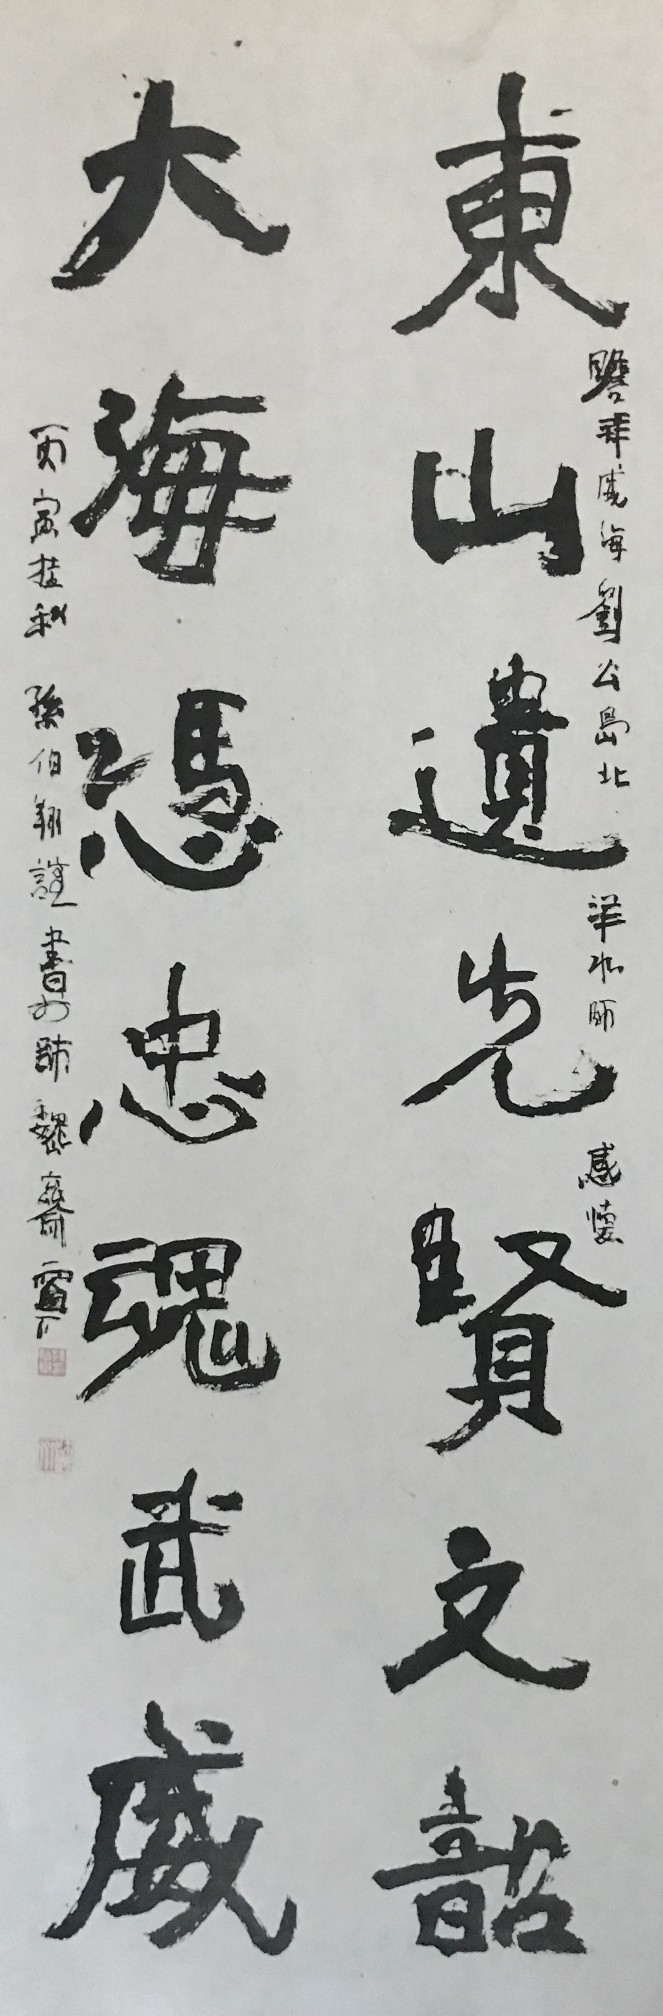 東山遺先賢文韶
瞻拜威海劉公島北洋水師感懷
大海憑忠魂武威
丙寅桂秋 孫伯翔謹書於師魏齋窗下